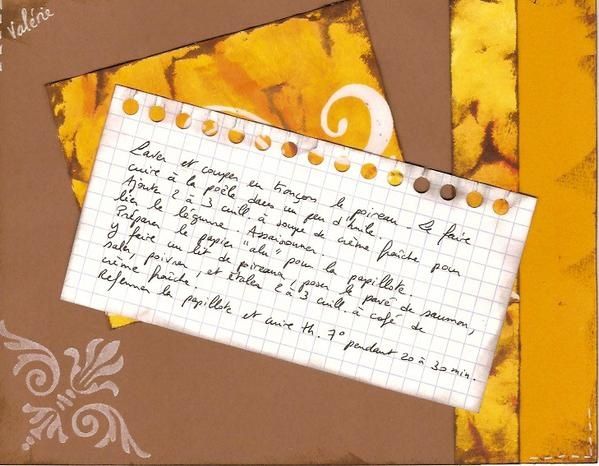 Valérie
Laver et couper en tronçon le poireau. Le faire
cuire à la poële dans un peu d'huile.
Ajouter 2 à 3 cuill. à soupe de crème fraîche pour
lier le légume. Assaisonner.
Préparer le papier "alu" pour la papillote.
y faire un lit de poireaux, poser le pavé de saumon,
saler, poivrer, et étaler 2 à 3 cuill. à café de
crème fraîche.
Refermer la papillote et cuire th. 7° pendant 20 à 30 min.